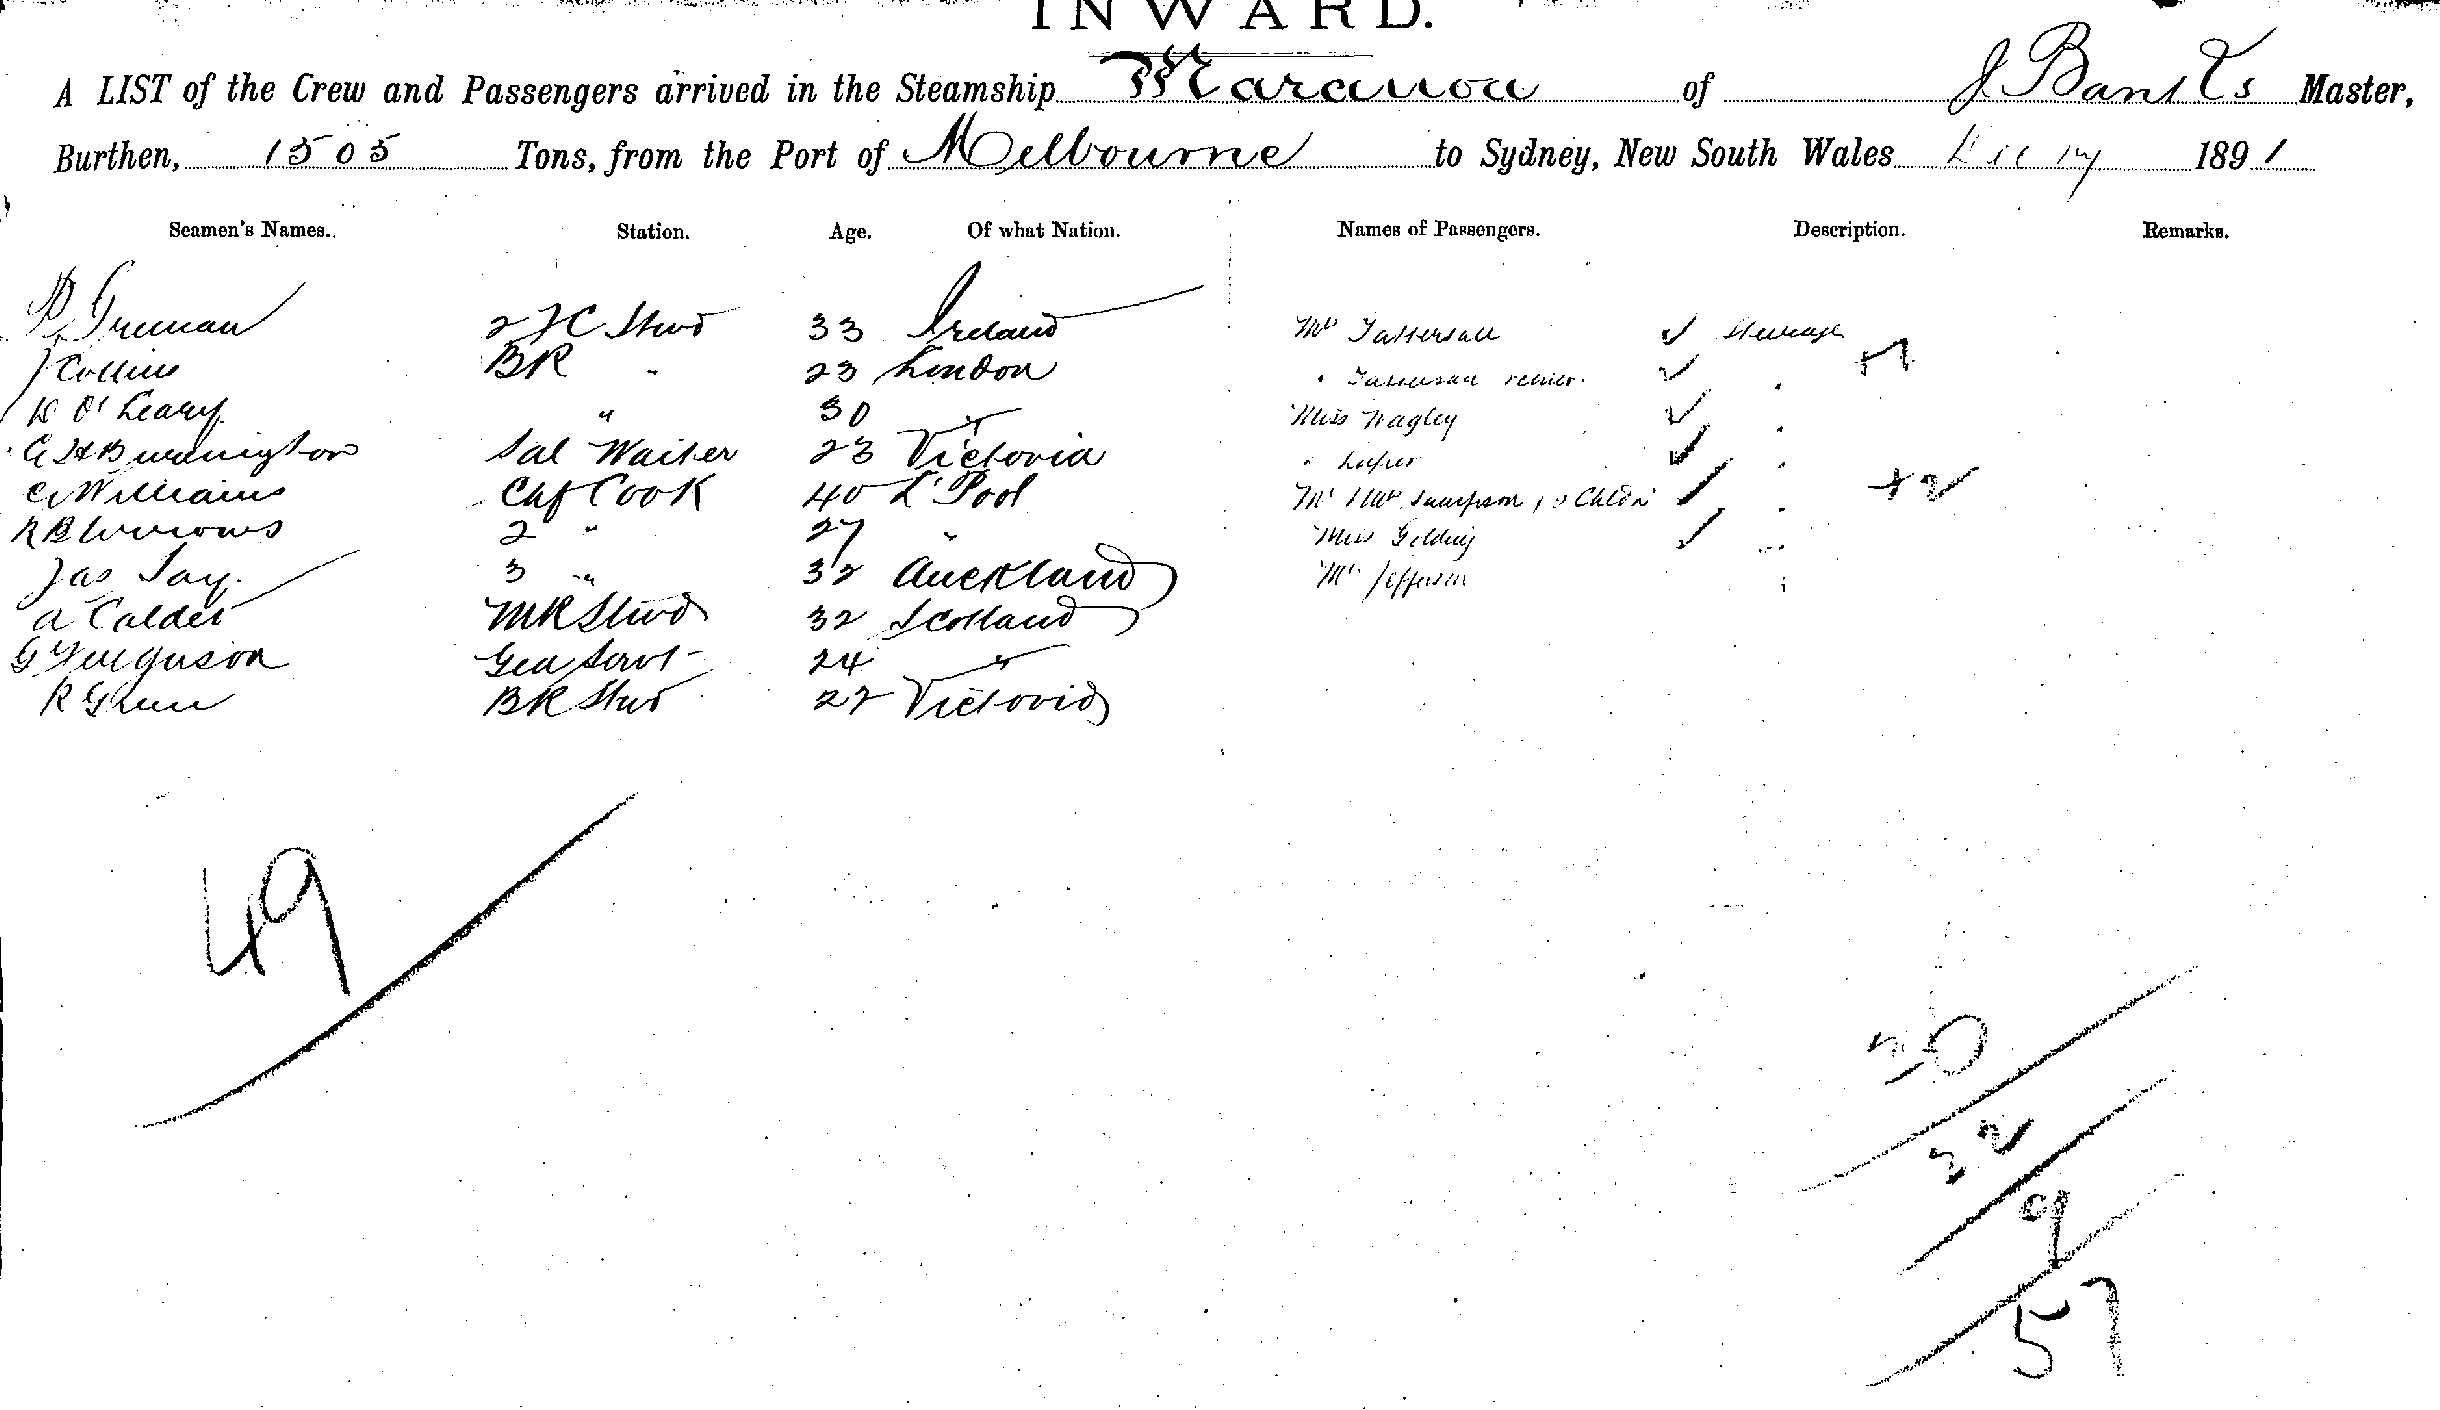 INWARD.
A LIST of the Crew and Passengers arrived in the Steamship Maranoa of J Banks Master,
Burthen, 1505 Tons, from the Port of Melbourne to Sydney, New South Wales Dec 1891
Seamen's Names. Station. Age. Of what Nation. Names of Passengers. Description. Remarks.
P 2 FC Stwd 33 Ireland Mrs Tattersall Steerage
J Collins BR " 23 London " Tattersall +1
D O'Leary " 30 " Miss Wagley "
Sal Waiter 23 Victoria " "
C Williams Chf Cook 40 L'Pool Mr & Mrs Sampson, Childn " +2
R Burrows 2 " 27 " Miss Golding "
Jas Jay 3 " 32 Auckland Mr Jefferson "
A Calder MR Stwd 32 Scotland
G Ferguson Gen Servt 24 "
R Green BR Stwd 22 Victoria
49
32
9
57